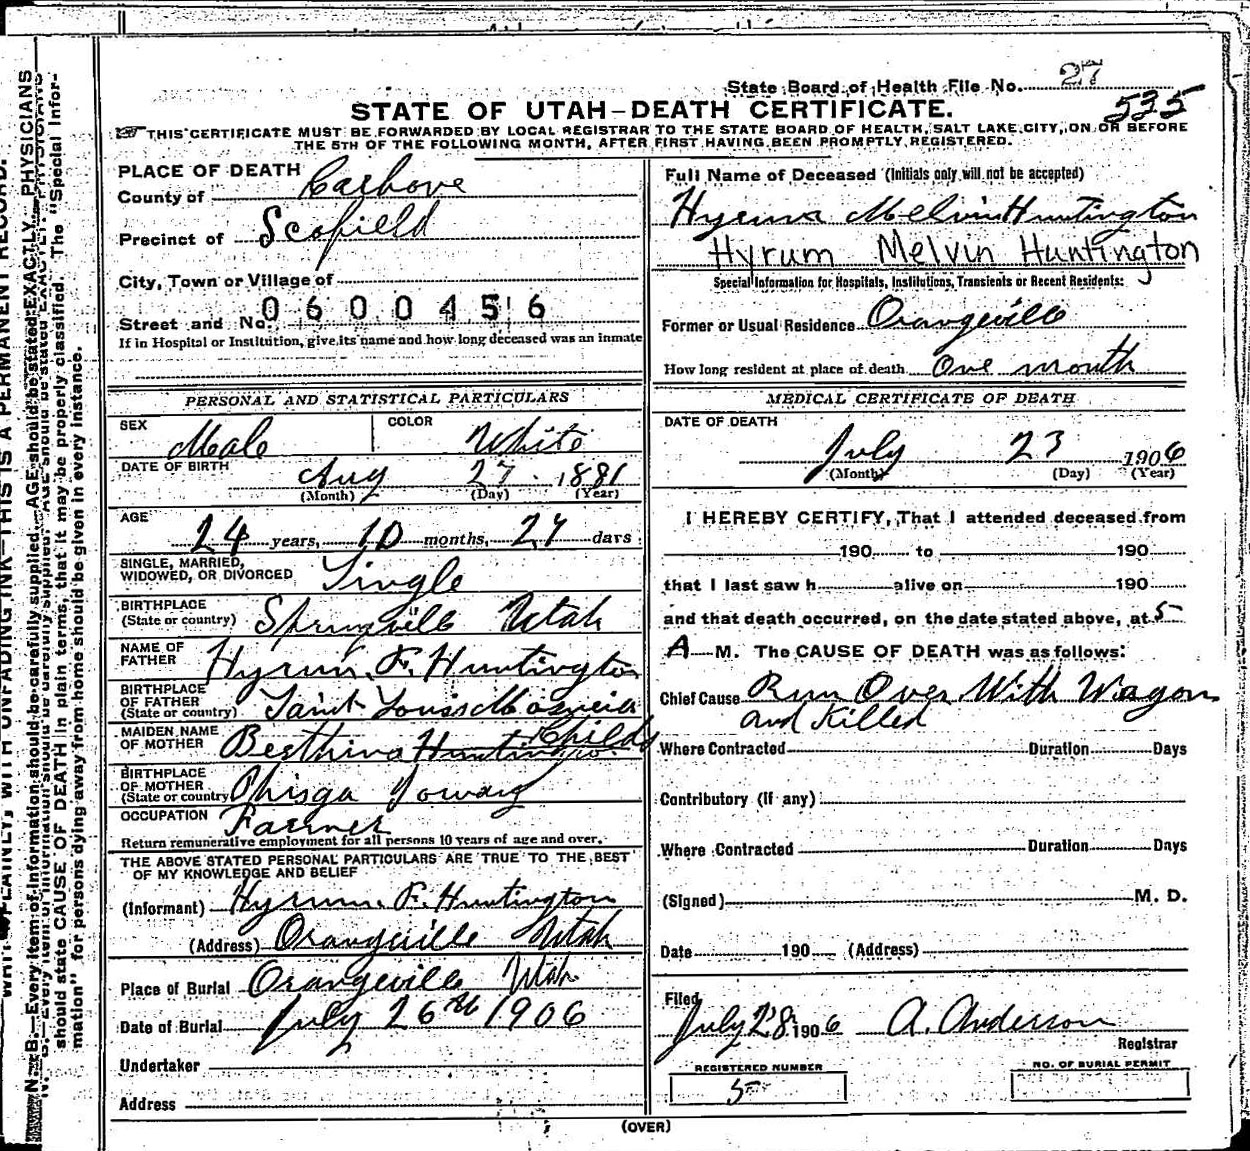 State Board of Health File No. 27
535
STATE OF UTAH—DEATH CERTIFICATE.
THIS CERTIFICATE MUST BE FORWARDED BY LOCAL REGISTRAR TO THE STATE BOARD OF HEALTH, SALT LAKE CITY, ON OR BEFORE
THE 5TH OF THE FOLLOWING MONTH, AFTER FIRST HAVING BEEN PROMPTLY REGISTERED.
PLACE OF DEATH
County of Carbone
Precinct of Scofield
City, Town or Village of
0600456
Street and No.
If in Hospital or Institution, give its name and how long deceased was an inmate
PERSONAL AND STATISTICAL PARTICULARS
SEX Male COLOR White
DATE OF BIRTH Aug 27 1881
(Month) (Day) (Year)
AGE 24 years, 10 months, 27 days
SINGLE, MARRIED,
WIDOWED, OR DIVORCED Single
BIRTHPLACE
(State or country) Springville Utah
NAME OF
FATHER Hyrum F. Huntington
BIRTHPLACE
OF FATHER
(State or country) Saint Louis
MAIDEN NAME
OF MOTHER Besthina Huntington Childs
BIRTHPLACE
OF MOTHER
(State or country)
OCCUPATION Farmer
Return remunerative employment for all persons 10 years of age and over.
THE ABOVE STATED PERSONAL PARTICULARS ARE TRUE TO THE BEST
OF MY KNOWLEDGE AND BELIEF
(Informant) Hyrum. F. Huntington
(Address) Orangeville Utah
Place of Burial Orangeville Utah
Date of Burial July 26th 1906
Undertaker
Address
Full Name of Deceased (Initials only will not be accepted)
Hyrum Melvin Huntington
Hyrum Melvin Huntington
Special Information for Hospitals, Institutions, Transients or Recent Residents:
Former or Usual Residence Orangeville
How long resident at place of death One month
MEDICAL CERTIFICATE OF DEATH
DATE OF DEATH
July 23 1906
(Month) (Day) (Year)
I HEREBY CERTIFY, That I attended deceased from
190 to 190
that I last saw h alive on 190
and that death occurred, on the date stated above, at 5
A M. The CAUSE OF DEATH was as follows:
Chief Cause Run Over With Wagon
and Killed
Where Contracted Duration Days
Contributory (if any)
Where Contracted Duration Days
(Signed) M. D.
Date 190 (Address)
Filed
July 28 1906 A. Anderson
Registrar
REGISTERED NUMBER
5
NO. OF BURIAL PERMIT
(OVER)
N. B.—Every item of information should be carefully supplied. AGE should be stated EXACTLY. PHYSICIANS
should state CAUSE OF DEATH in plain terms, that it may be properly classified. The "Special Infor-
mation" for persons dying away from home should be given in every instance.